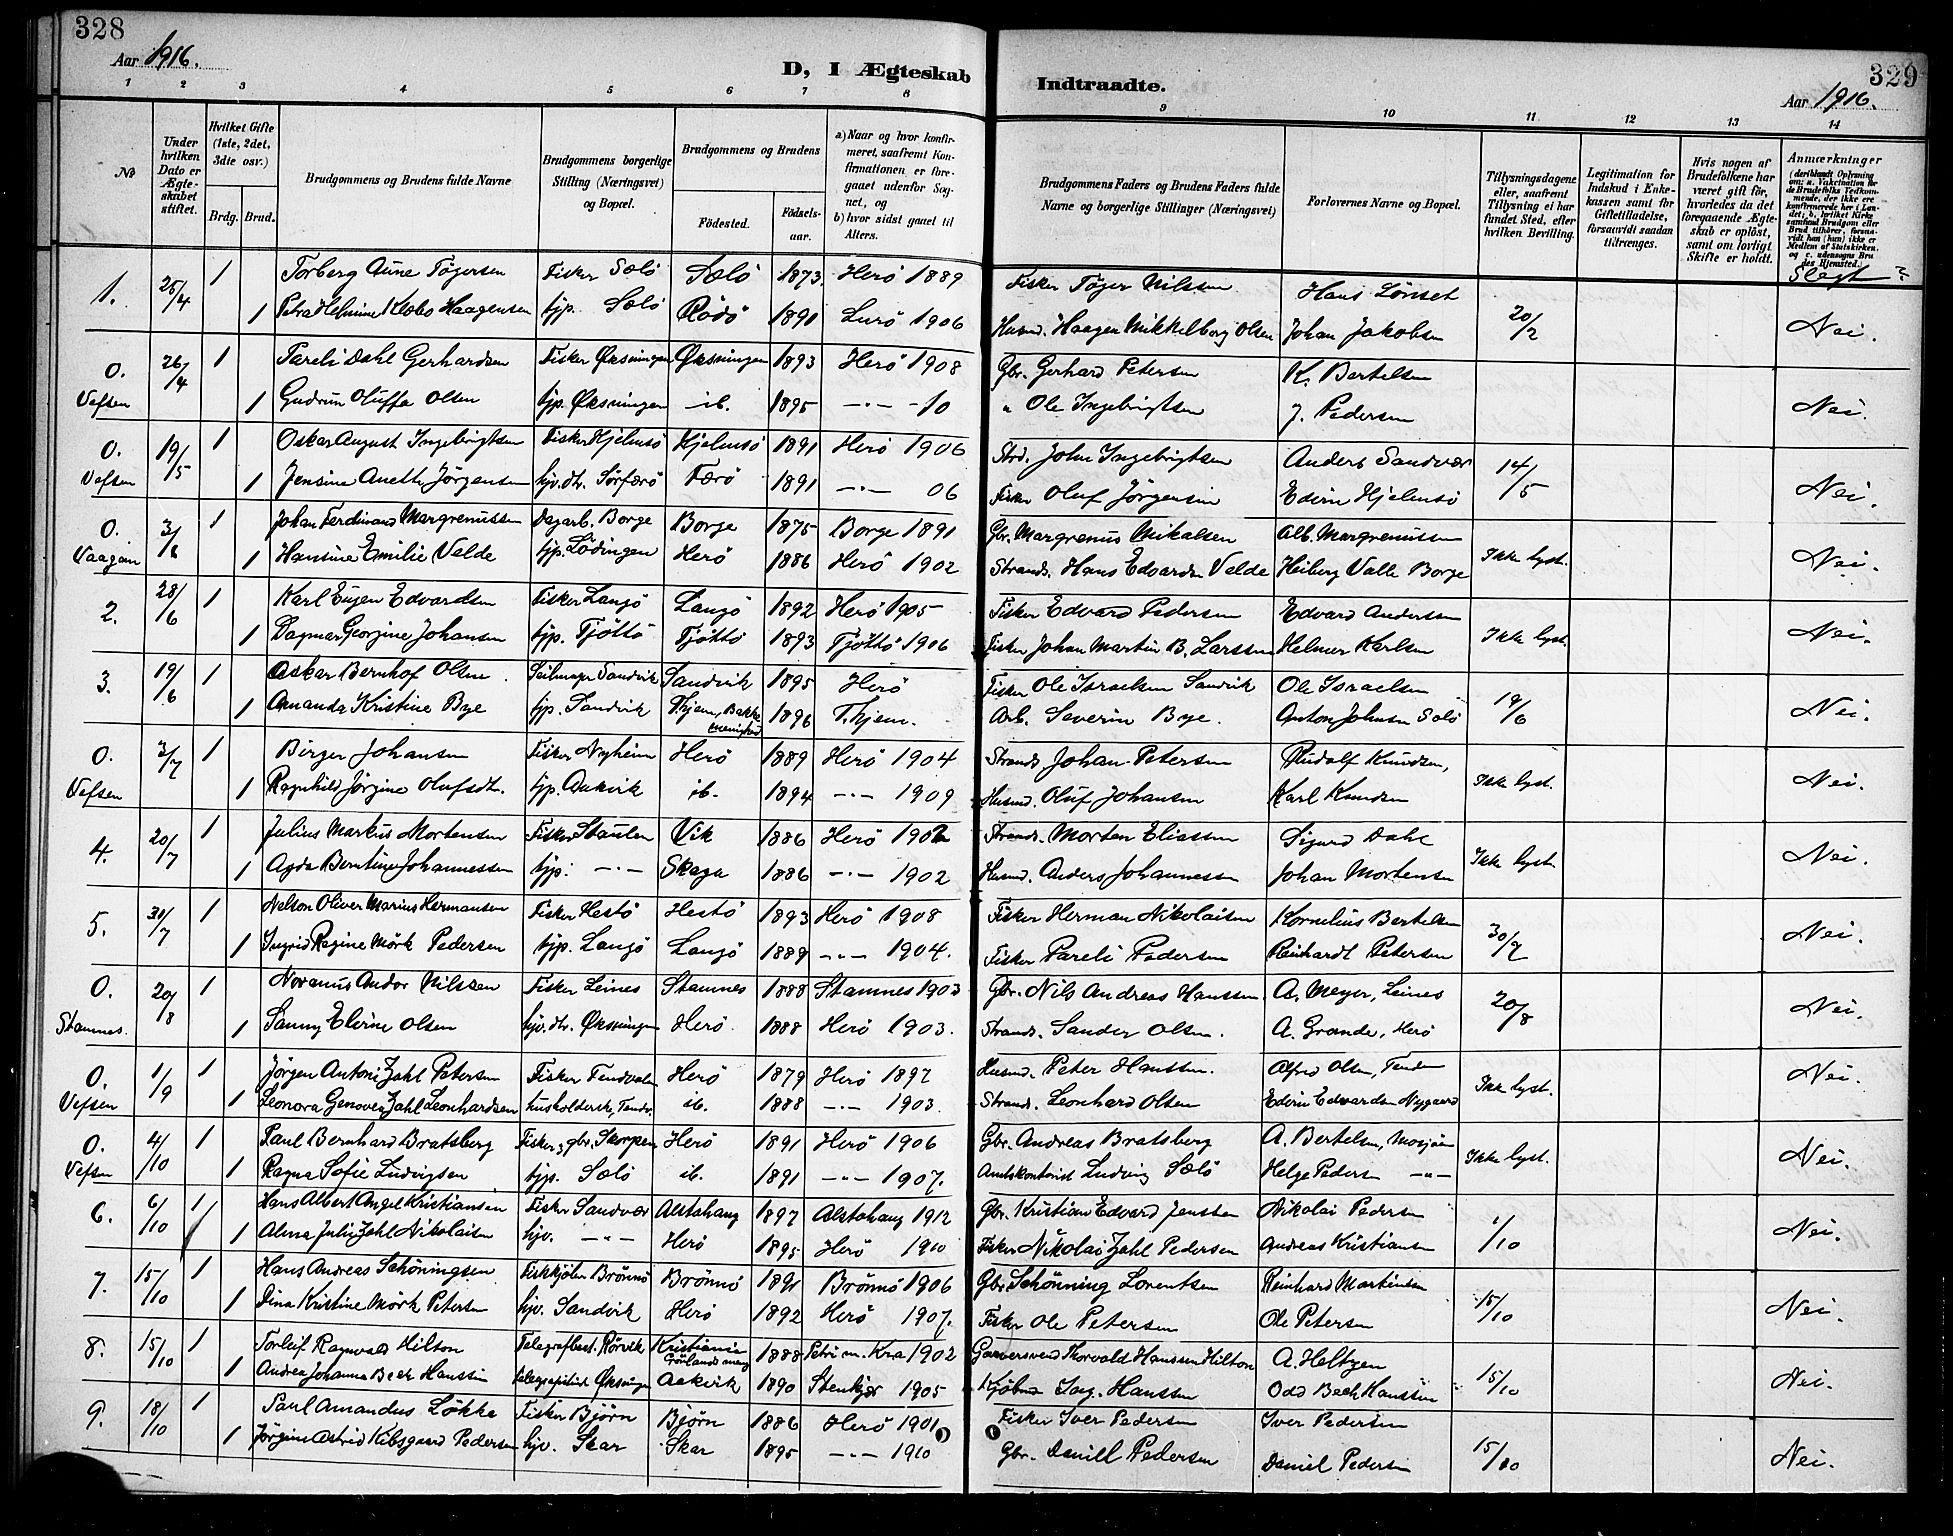 328
Aar 1916.
D, I Ægteskab Indtraadte.
329
Aar 1916.
1 2 3 4 5 6 7 8 9 10 11 12 13 14
No
Under hvilken Dato er Ægteskabet stiftet.
Hvilket Gifte (1ste, 2det, 3die osv.)
Brdg. Brud.
Brudgommens og Brudens fulde Navne
Brudgommens borgerlige Stilling (Næringsvei) og Bopæl.
Brudgommens og Brudens
Födested.
Födselsaar.
a) Naar og hvor konfirmeret, saafremt Konfirmationen er foregaaet udenfor Sognet, og
b) hvor sidst gaaet til Alters.
Brudgommens Faders og Brudens Faders fulde Navne og borgerlige Stillinger (Næringsvei)
Forlovernes Navne og Bopæl.
Tillysningsdagene eller, saafremt Tillysning ei har fundet Sted, efter hvilken Bevilling.
Legitimation for Indskud i Enkekassen samt for Giftetilladelse, forsaavidt saadan tiltrænges.
Hvis nogen af Brudefolkene har været gift för, hvorledes da det foregaaende Ægteskab er oplöst, samt om lovligt Skifte er holdt.
Anmærkninger (deriblandt Oplysning om: a. Vakcination for de Brudefolks Vedkommende, der ikke ere konfirmerede her i Landet; b. hvilket Kirkesamfund Brudgom eller Brud tilhörer, forsaavidt han (hun) ikke er Medlem af Statskirken, og c. udensogns Brudes Hjemsted.)
Slegt?
1. 25/4 1 Torberg Aune Tøgersen Fisker Sølø Sølø 1873 Herø 1889 Fisker Tøger Nilssen Hans Lønset 20/2 Nei.
1 Petra Helmine Klæbo Haagensen tjp. Sølø Rødø 1891 Lurø 1906 Husmd. Haagen Mikkelborg Olsen Johan Jakobsen
0. 26/4 1 Pareli Dahl Gerhardsen Fisker Øksningen Øksningen 1893 Herø 1908 Gbr. Gerhard Petersen K. Bertelsen Nei.
Vefsen 1 Gudrun Oluffa Olsen tjp. Øksningen ib. 1895 -"- -10 " Ole Ingebrigtsen J. Pedersen
0. 19/5 1 Oskar August Ingebrigtsen Fisker Hjelmsø Hjelmsø 1891 Herø 1906 Strd. John Ingebrigtsen Anders Sandvær 14/5 Nei.
Vefsen 1 Jensine Anette Jørgensen hjv. dtr. Sørfærø Færø 1891 -"- 06 Fisker Oluf Jørgensen Edvin Hjelmsø
0. 3/6 1 Johan Ferdinand Margrenussen Dagarb. Borge Borge 1875 Borge 1891 Gbr. Margrenus Mikalsen Alb. Margrenussen Ikke lyst. Nei.
Vaagan 1 Hansine Emilie Velde tjp. Lødingen Herø 1886 Herø 1902 Strands. Hans Edvardsen Velde Heiberg Valle Borge
2. 28/6 1 Karl Eugen Edvardsen Fisker Langø Langø 1892 Herø 1905 Fisker Edvard Pedersen Edvard Andersen Ikke lyst. Nei.
1 Dagmar Georgine Johansen tjp. Tjøttø Tjøttø 1893 Tjøttø 1906 Fisker Johan Martin B. Larssen Helmer Karlsen
3. 19/6 1 Oskar Bernhof Olsen Seilmager Sandvik Sandvik 1895 Herø Fisker Ole Israelsen Sandvik Ole Israelsen 19/6 Nei.
1 Amanda Kristine Bye tjp. Sandvik T.hjem, Bakke 1896 T.hjem. Arb. Severin Bye. Anton Johnsen Sølø
0. 3/7 1 Birger Johansen Fisker Nyheim Herø 1889 Herø 1904 Strands Johan Petersen Rudolf Knudsen, Ikke lyst. Nei.
Vefsen 1 Ragnhild Jørgine Olufsdtr. tjp. Aakvik ib. 1894 -"- 1909 Husmd. Oluf Johansen Karl Knudsen
4. 20/7 1 Julius Markus Mortensen Fisker Staulen Vik 1886 Herø 1902 Strands. Morten Eliassen Sigurd Dahl Ikke lyst. Nei.
1 Agda Berntine Johannessen tjp. -"- Skaga 1886 -"- 1902 Husmd. Anders Johannessen Johan Mortensen
5. 30/7 1 Nelson Oliver Marius Hermansen Fisker Hestø Hestø 1893 Herø 1908 Fisker Herman Nikolaisen Kornelius Bertelsen 30/7 Nei.
1 Ingrid Regine Mørk Pedersen tjp. Langø Langø 1889 -"- 1904. Fisker Pareli Pedersen Reinhardt Petersen
0. 20/8 1 Noranus Andor Nilssen Fisker Leines Stamnes 1888 Stamnes 1903 Gbr. Nils Andreas Hanssen A. Meyer, Leines 20/8 Nei.
Stamnes. 1 Sanny Elvine Olsen hjv. dtr. Øksningen Herø 1888 Herø 1903. Strands. Sander Olsen. A. Grande, Herø
0. 1/9 1 Jørgen Antoni Zahl Petersen Fisker Tendvalen Herø 1879 Herø 1897 Husmd. Peter Hanssen. Alfred Olsen, Ikke lyst. Nei.
Vefsen 1 Leonora Genovea Zahl Leonhardsen husholderske, Tendv. ib. 1888 -"- 1903. Strands. Leonhard Olsen Edvin Edvardsen Nygaard
0. 4/10 1 Paul Bernhard Bratsberg Fisker, gbr. Skorpen Herø 1891 Herø 1906 Gbr. Andreas Bratsberg A. Bertelsen, Mosjøen Ikke lyst. Nei.
Vefsen 1 Ragna Sofie Ludvigsen tjp. Sølø ib. 1891 -"- 1907. Amtskontorist Ludvig Sølø Helge Pedersen -"-
6. 6/10 1 Hans Albert Angel Kristiansen Fisker Sandvær Alstahaug 1897 Alstahaug 1912 Gbr. Kristian Edvard Jenssen Nikolai Pedersen 1/10 Nei.
1 Alma Julie Zahl Nikolaisen hjv. -"- Herø 1895 Herø 1910 Fisker Nikolai Zahl Pedersen Andreas Kristiansen
7. 15/10 1 Hans Andreas Schöningsen Fiskkjøber Brönnö Brönnö 1891 Brönnö 1906 Gbr. Schönning Lorentsen Reinhard Martinsen 15/10 Nei.
1 Dina Kristine Mørk Petersen hjv. Sandvik Herø 1892 Herø 1907. Fisker Ole Petersen Ole Petersen
8. 15/10 1 Torleif Ragnvald Hilton Telegrafbest. Rørvik Kristiania Grönlands meng 1888 Petri m. Kra 1902 Garversvend Thorvald Hanssen Hilton A. Heltzen 15/10 Nei.
1 Andrea Johanna Bech Hanssen telegrafistinde Øksningen Aakvik 1890 Stenkjær 1905 Kjøbm. Ing. Hanssen Odd Bech Hanssen
9. 18/10 1 Paul Amandus Løkke Fisker Bjørn Bjørn 1886 Herø 1901 Fisker Iver Pedersen Iver Pedersen 15/10 Nei.
1 Jørgine Astrid Kibsgaard Pedersen hjv. Skar Skar 1895 -"- 1910 Gbr. Daniel Pedersen Daniel Pedersen